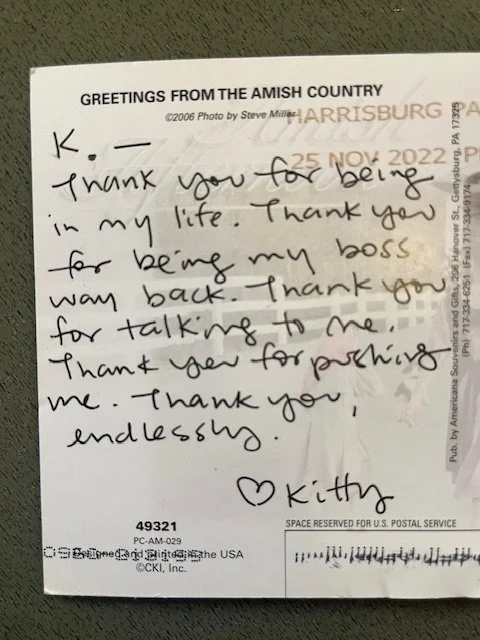 GREETINGS FROM THE AMISH COUNTRY
©2006 Photo by Steve Miller
HARRISBURG PA
25 NOV 2022 P
K. —
Thank you for being
in my life. Thank you
for being my boss
way back. Thank you
for talking to me.
Thank you for pushing
me. Thank you,
endlessly.
♡ Kitty
Pub. by Americana Souvenirs and Gifts, 206 Hanover St., Gettysburg, PA 17325
(Ph) 717-334-6251 (Fax) 717-334-9174
49321
PC-AM-029
Designed and Printed in the USA
©CKI, Inc.
SPACE RESERVED FOR U.S. POSTAL SERVICE